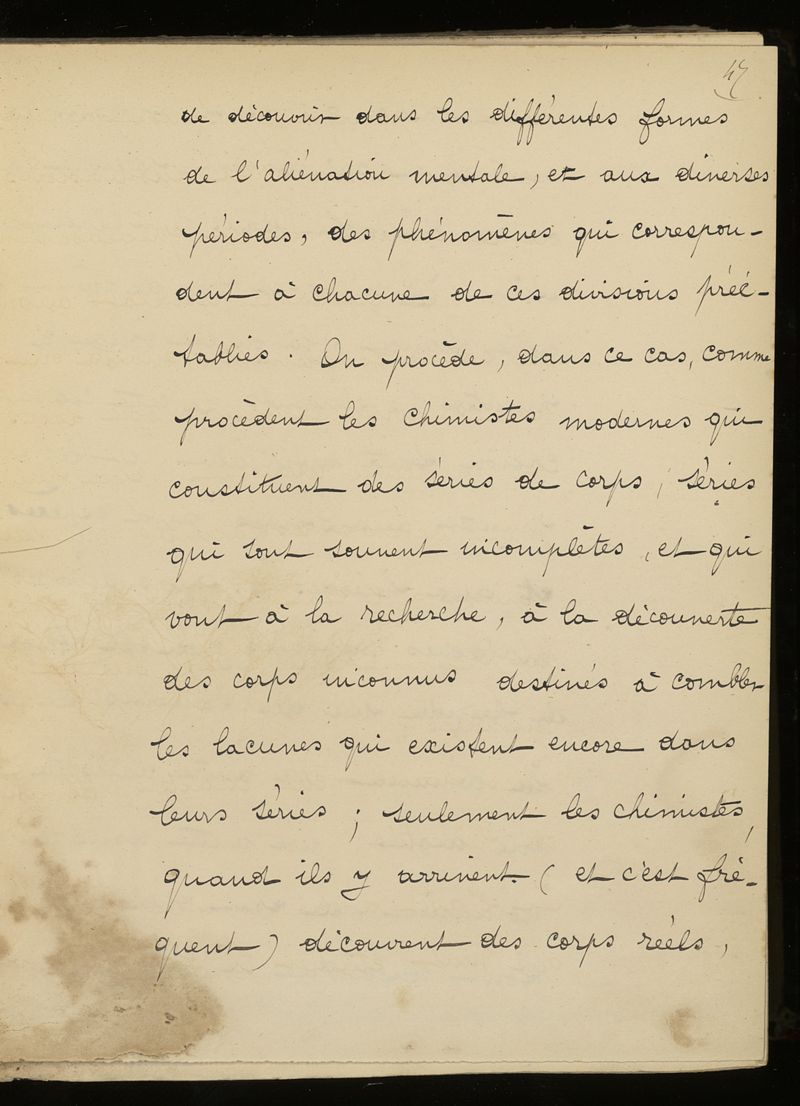 47
de découvrir dans les différentes formes
de l'aliénation mentale, et aux diverses
périodes, des phénomènes qui correspon-
dent à chacune de ces divisions préé-
tablies. On procède, dans ce cas, comme
procèdent les chimistes modernes qui
constituent des séries de corps, séries
qui sont souvent incomplètes, et qui
vont à la recherche, à la découverte
des corps inconnus destinés à combler
les lacunes qui existent encore dans
leurs séries ; seulement les chimistes,
quand ils y arrivent (et c'est fré-
quent) découvrent des corps réels,